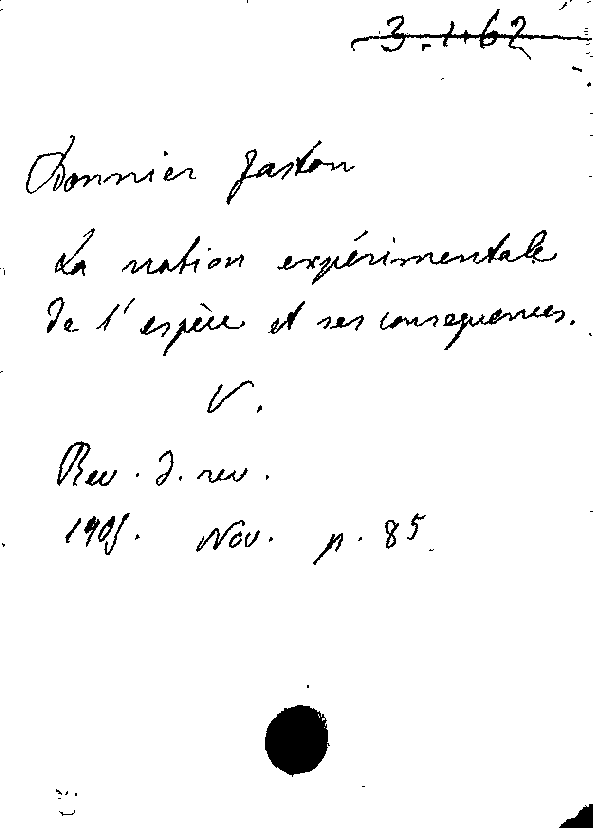 3.1.62
Bonnier Gaston
La notion expérimentale
de l'espèce et ses consequences.
V.
Rev. d. rev.
1905. Nov. p. 85